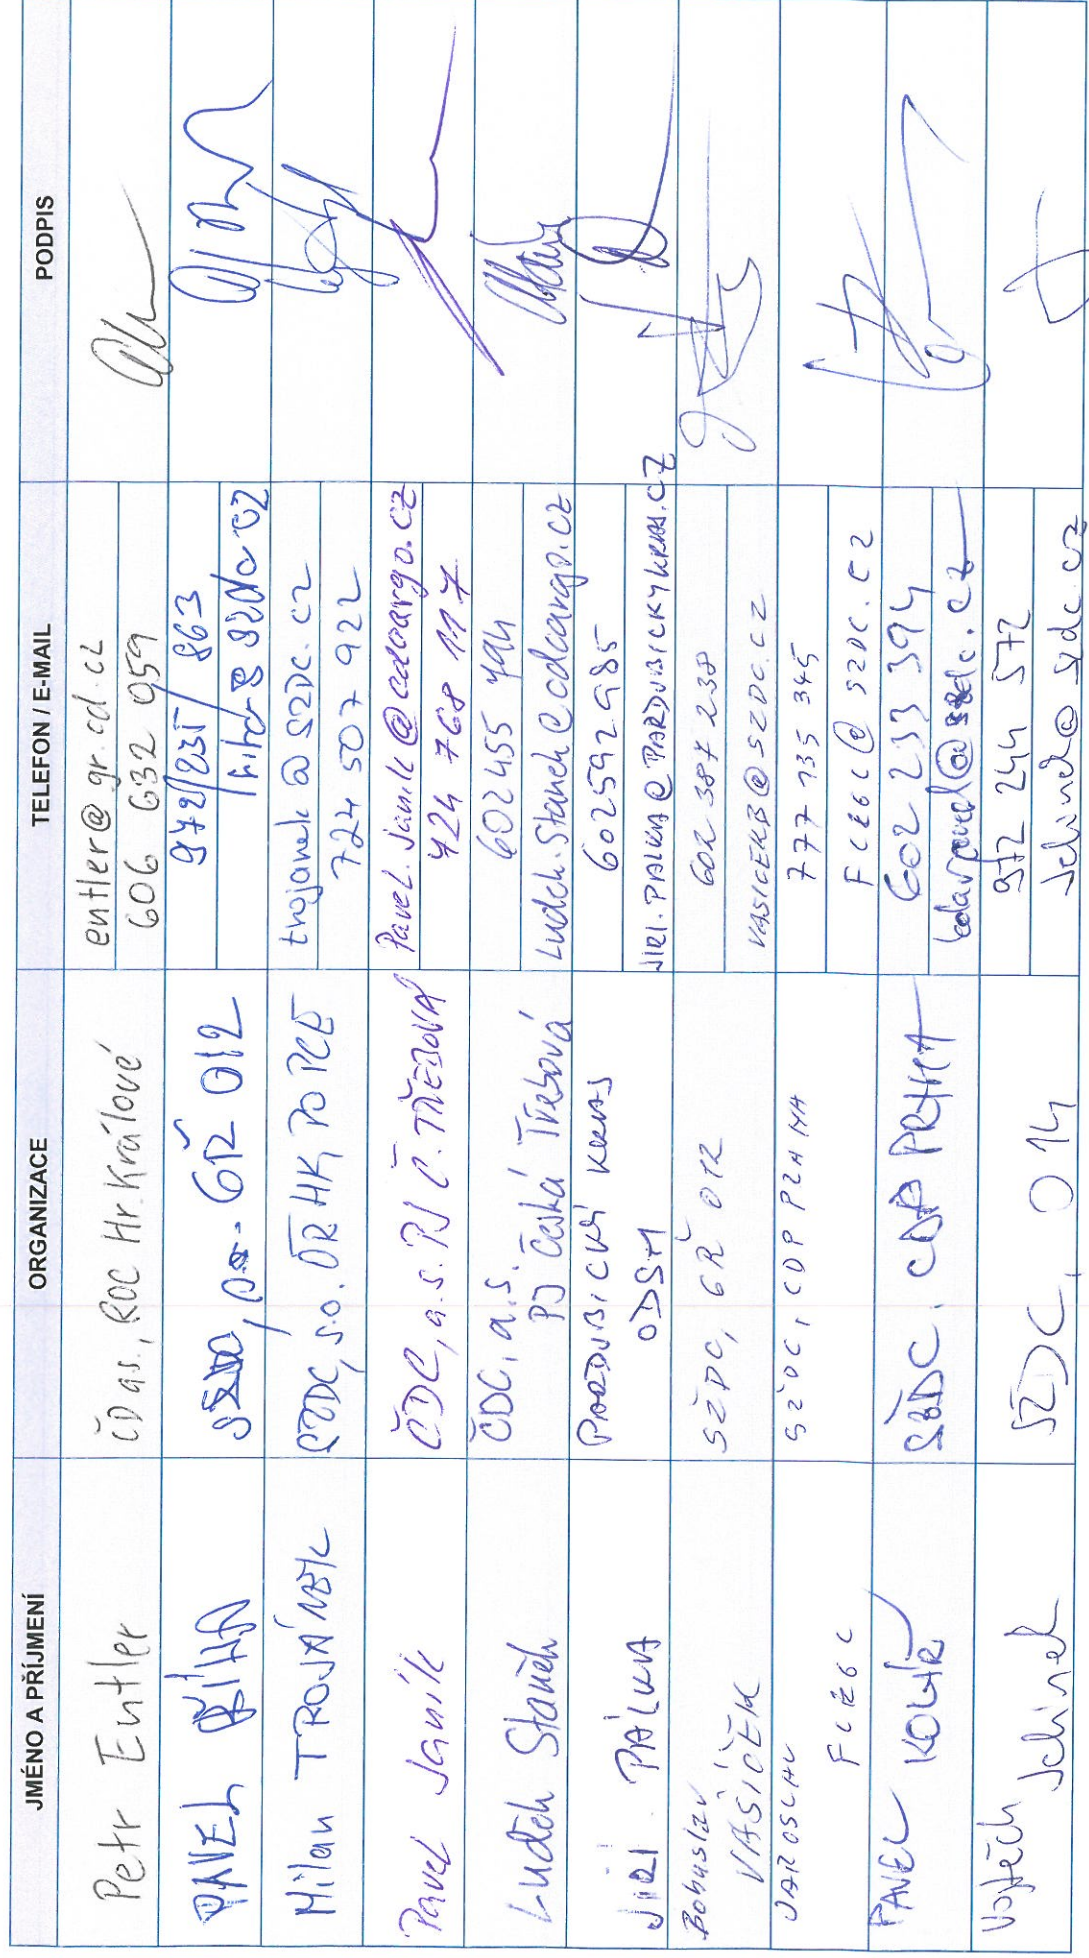 JMÉNO A PŘÍJMENÍ ORGANIZACE TELEFON / E-MAIL PODPIS
Petr Entler ČD a.s., ROC Hr. Králové entler@gr.cd.cz
606 632 959
PAVEL ŘÍHA GŘ O12 972/235/863
Milan TROJÁNEK SŽDC, s.o. OŘ HK PO PCE trojanek@szdc.cz
724 507 922
Pavel Janík ČDC, a.s. PJ Č. TŘEBOVÁ Pavel.Janik@cdcargo.cz
724 768 117
Luděk Staněk ČDC, a.s. 602 455 794
PJ Česká Třebová Ludek.Stanek@cdcargo.cz
JIŘÍ PÁLKA PARDUBICKÝ KRAJ 602592985
ODSH JIRI.PALKA@PARDUBICKYKRAJ.CZ
Bohuslav SŽDC, GŘ O12 602 387 238
VAŠÍČEK VASICEKB@SZDC.CZ
JAROSLAV SŽDC, CDP PRAHA 777 135 345
FLÉGL FLEGL@SZDC.CZ
PAVEL KOLÁŘ SŽDC, CDP PRAHA 602 233 394
Vojtěch Jelinek SŽDC, O14 972 244 572
Jelinek@szdc.cz